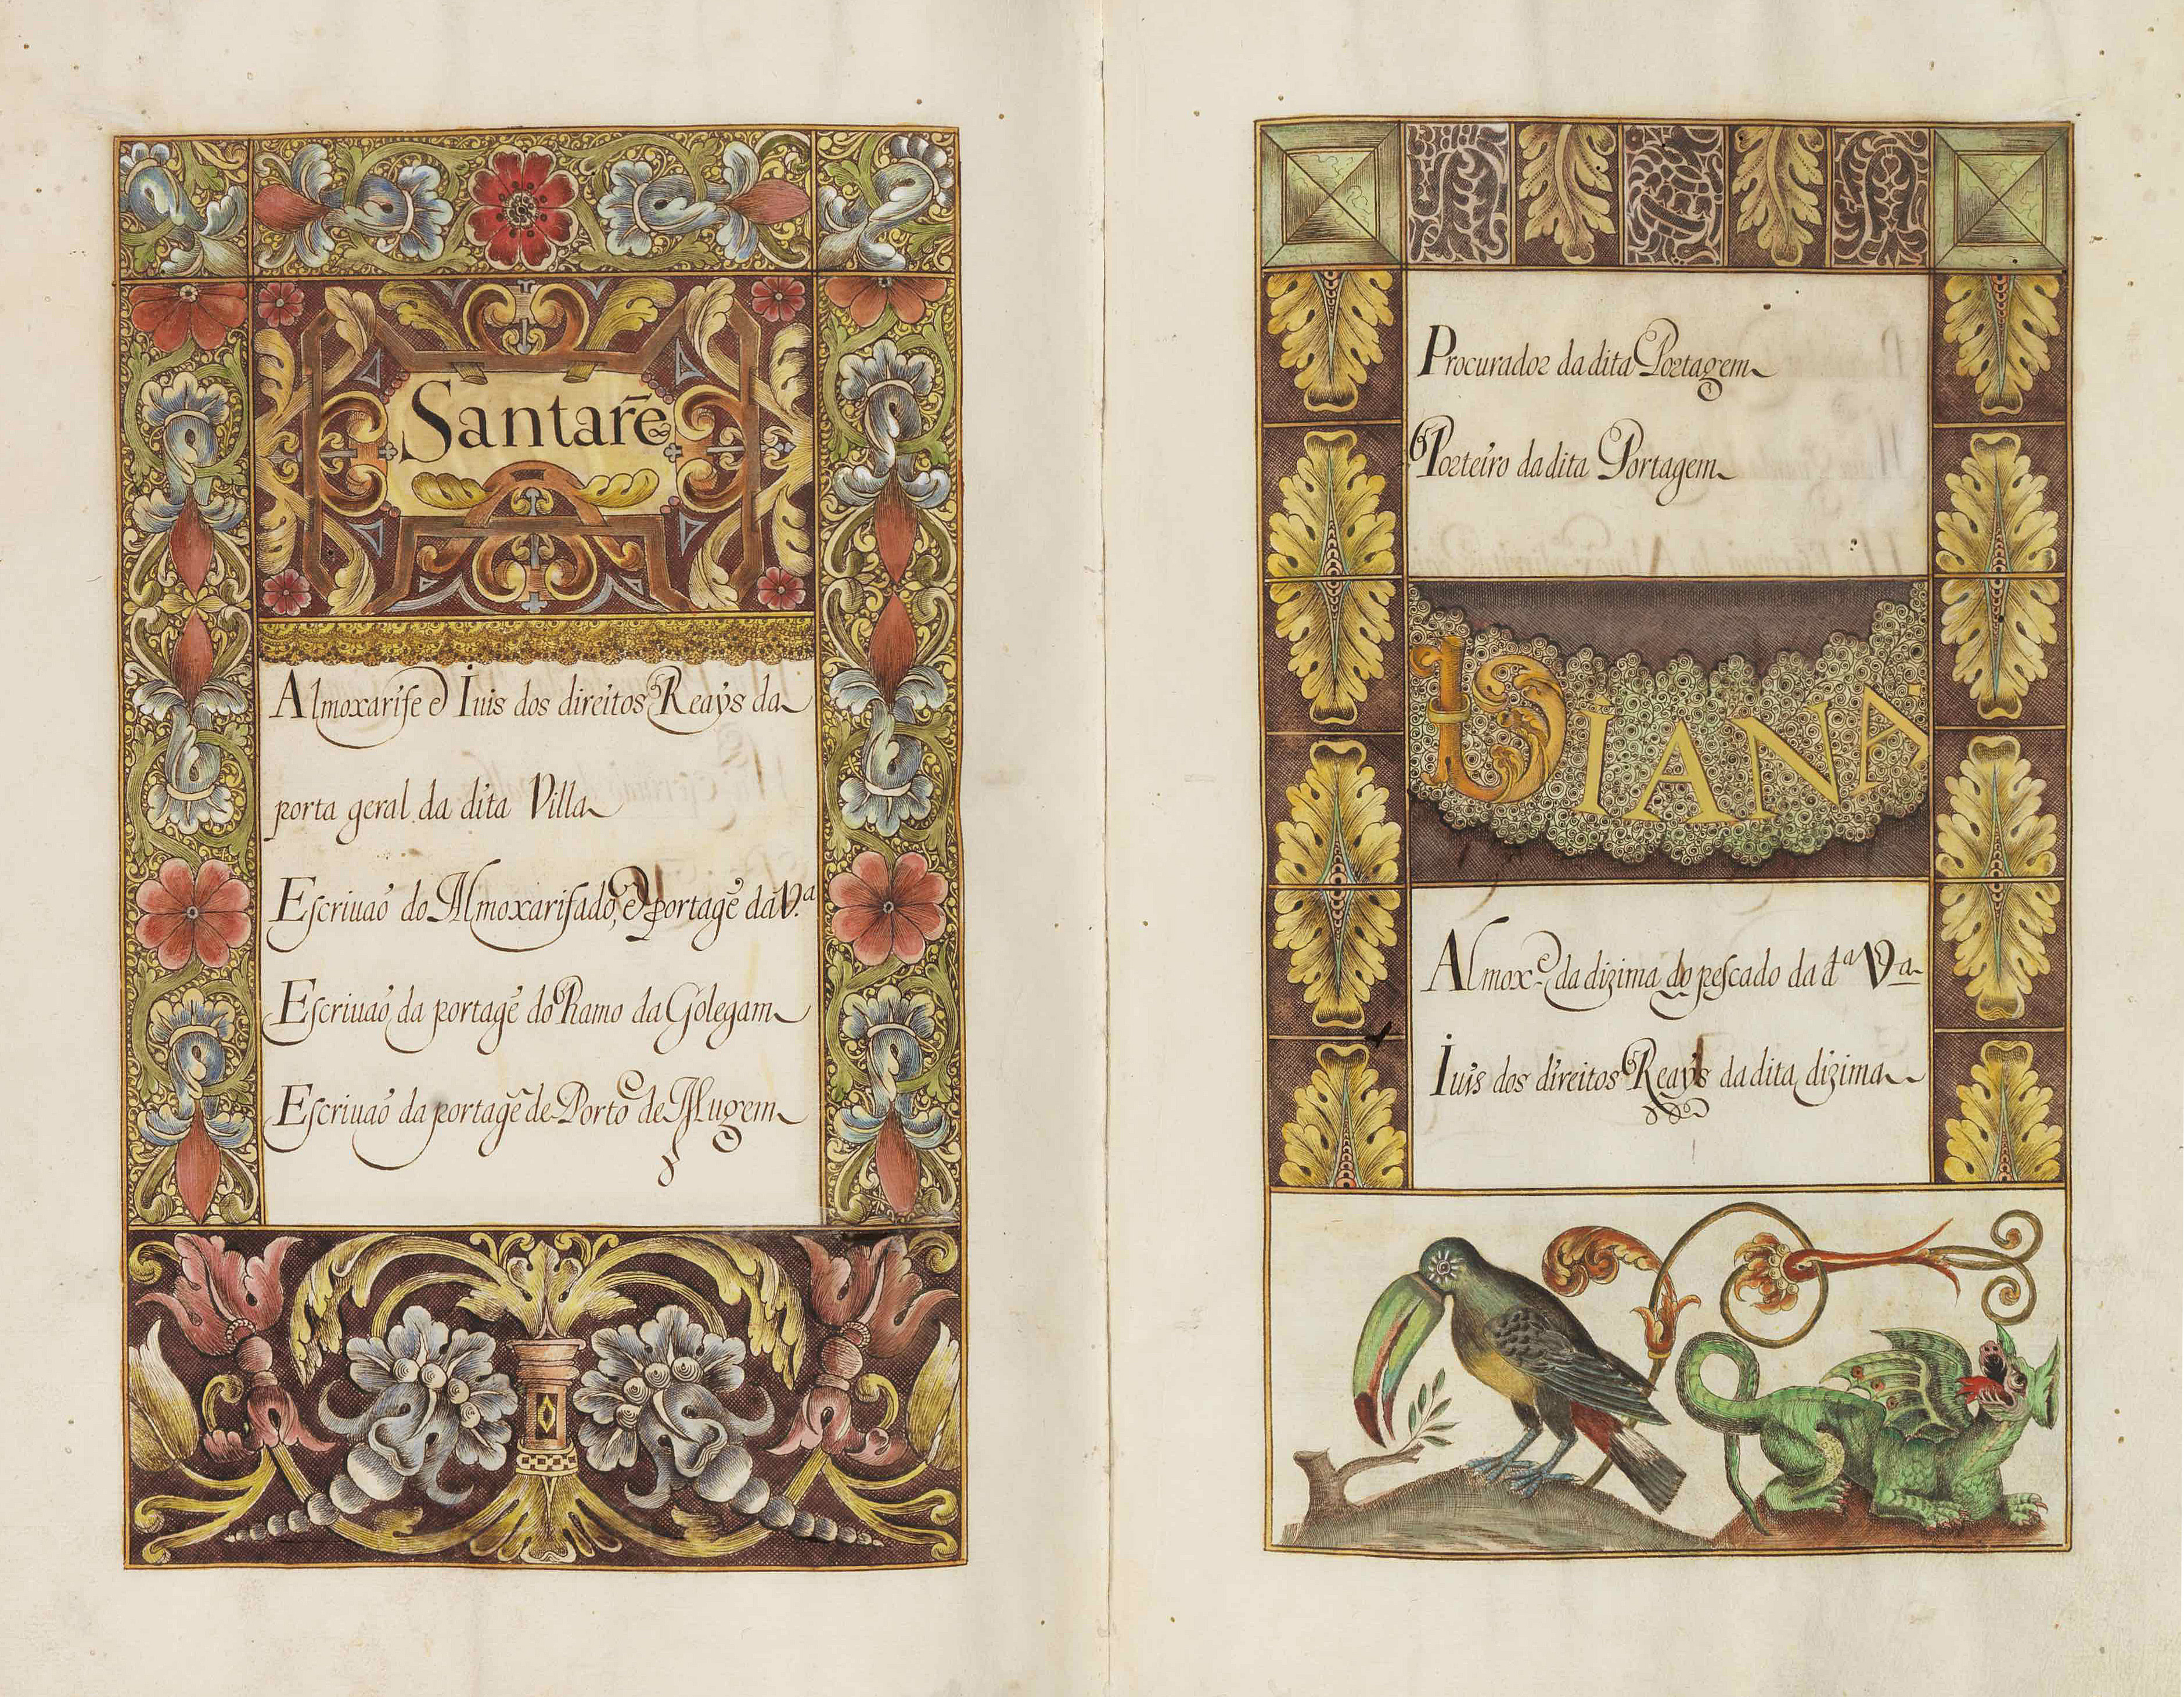 Santarẽ
Almoxarife e Iuis dos direitos Reaÿs da
porta geral da dita Villa
Escriuaõ do Almoxarifado, e portagẽ da V.ª
Escriuaõ da portagẽ do Ramo da Golegam
Escriuaõ da portagẽ de Porto de Mugem
Procurador da dita Portagem
Porteiro da dita Portagem
VIANA
Almox.e da dizima do pescado da dª Vª
Iuis dos direitos Reaÿs da dita dizima